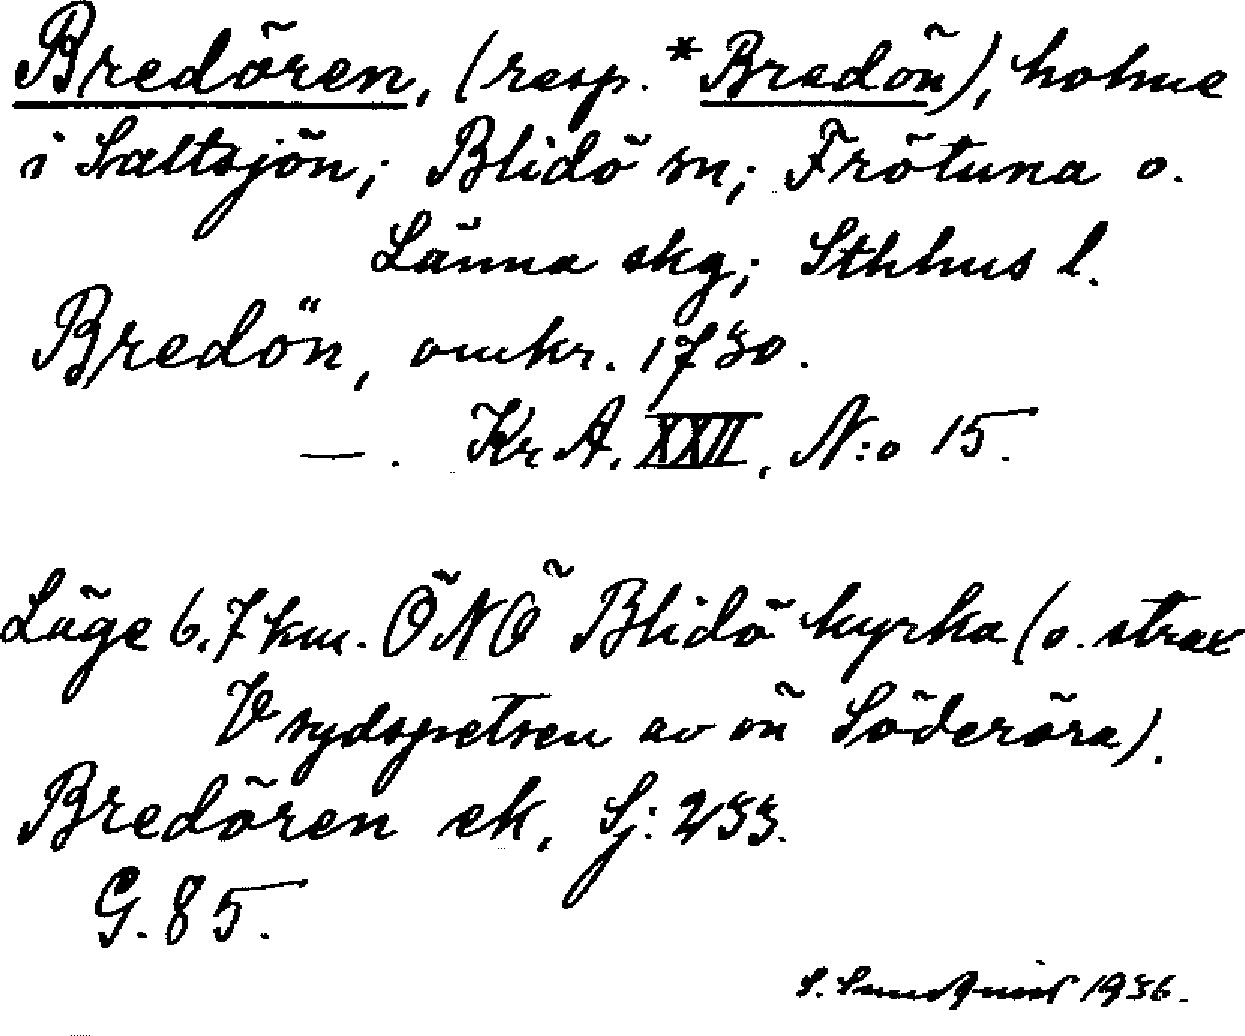 Bredören, (resp. *Bredön), holme
i Saltsjön; Blidö sn; Frötuna o.
Länna skg; Sthlms l.
Bredön, omkr. 1730.
—. Kr A. XXII, N:o 15.
Läge 6,7 km. ÖNÖ Blidö kyrka (o. strax
V sydspetsen av ön Söderöra).
Bredören ek, Sj: 233.
G. 85.
S. Sundquist 1936.